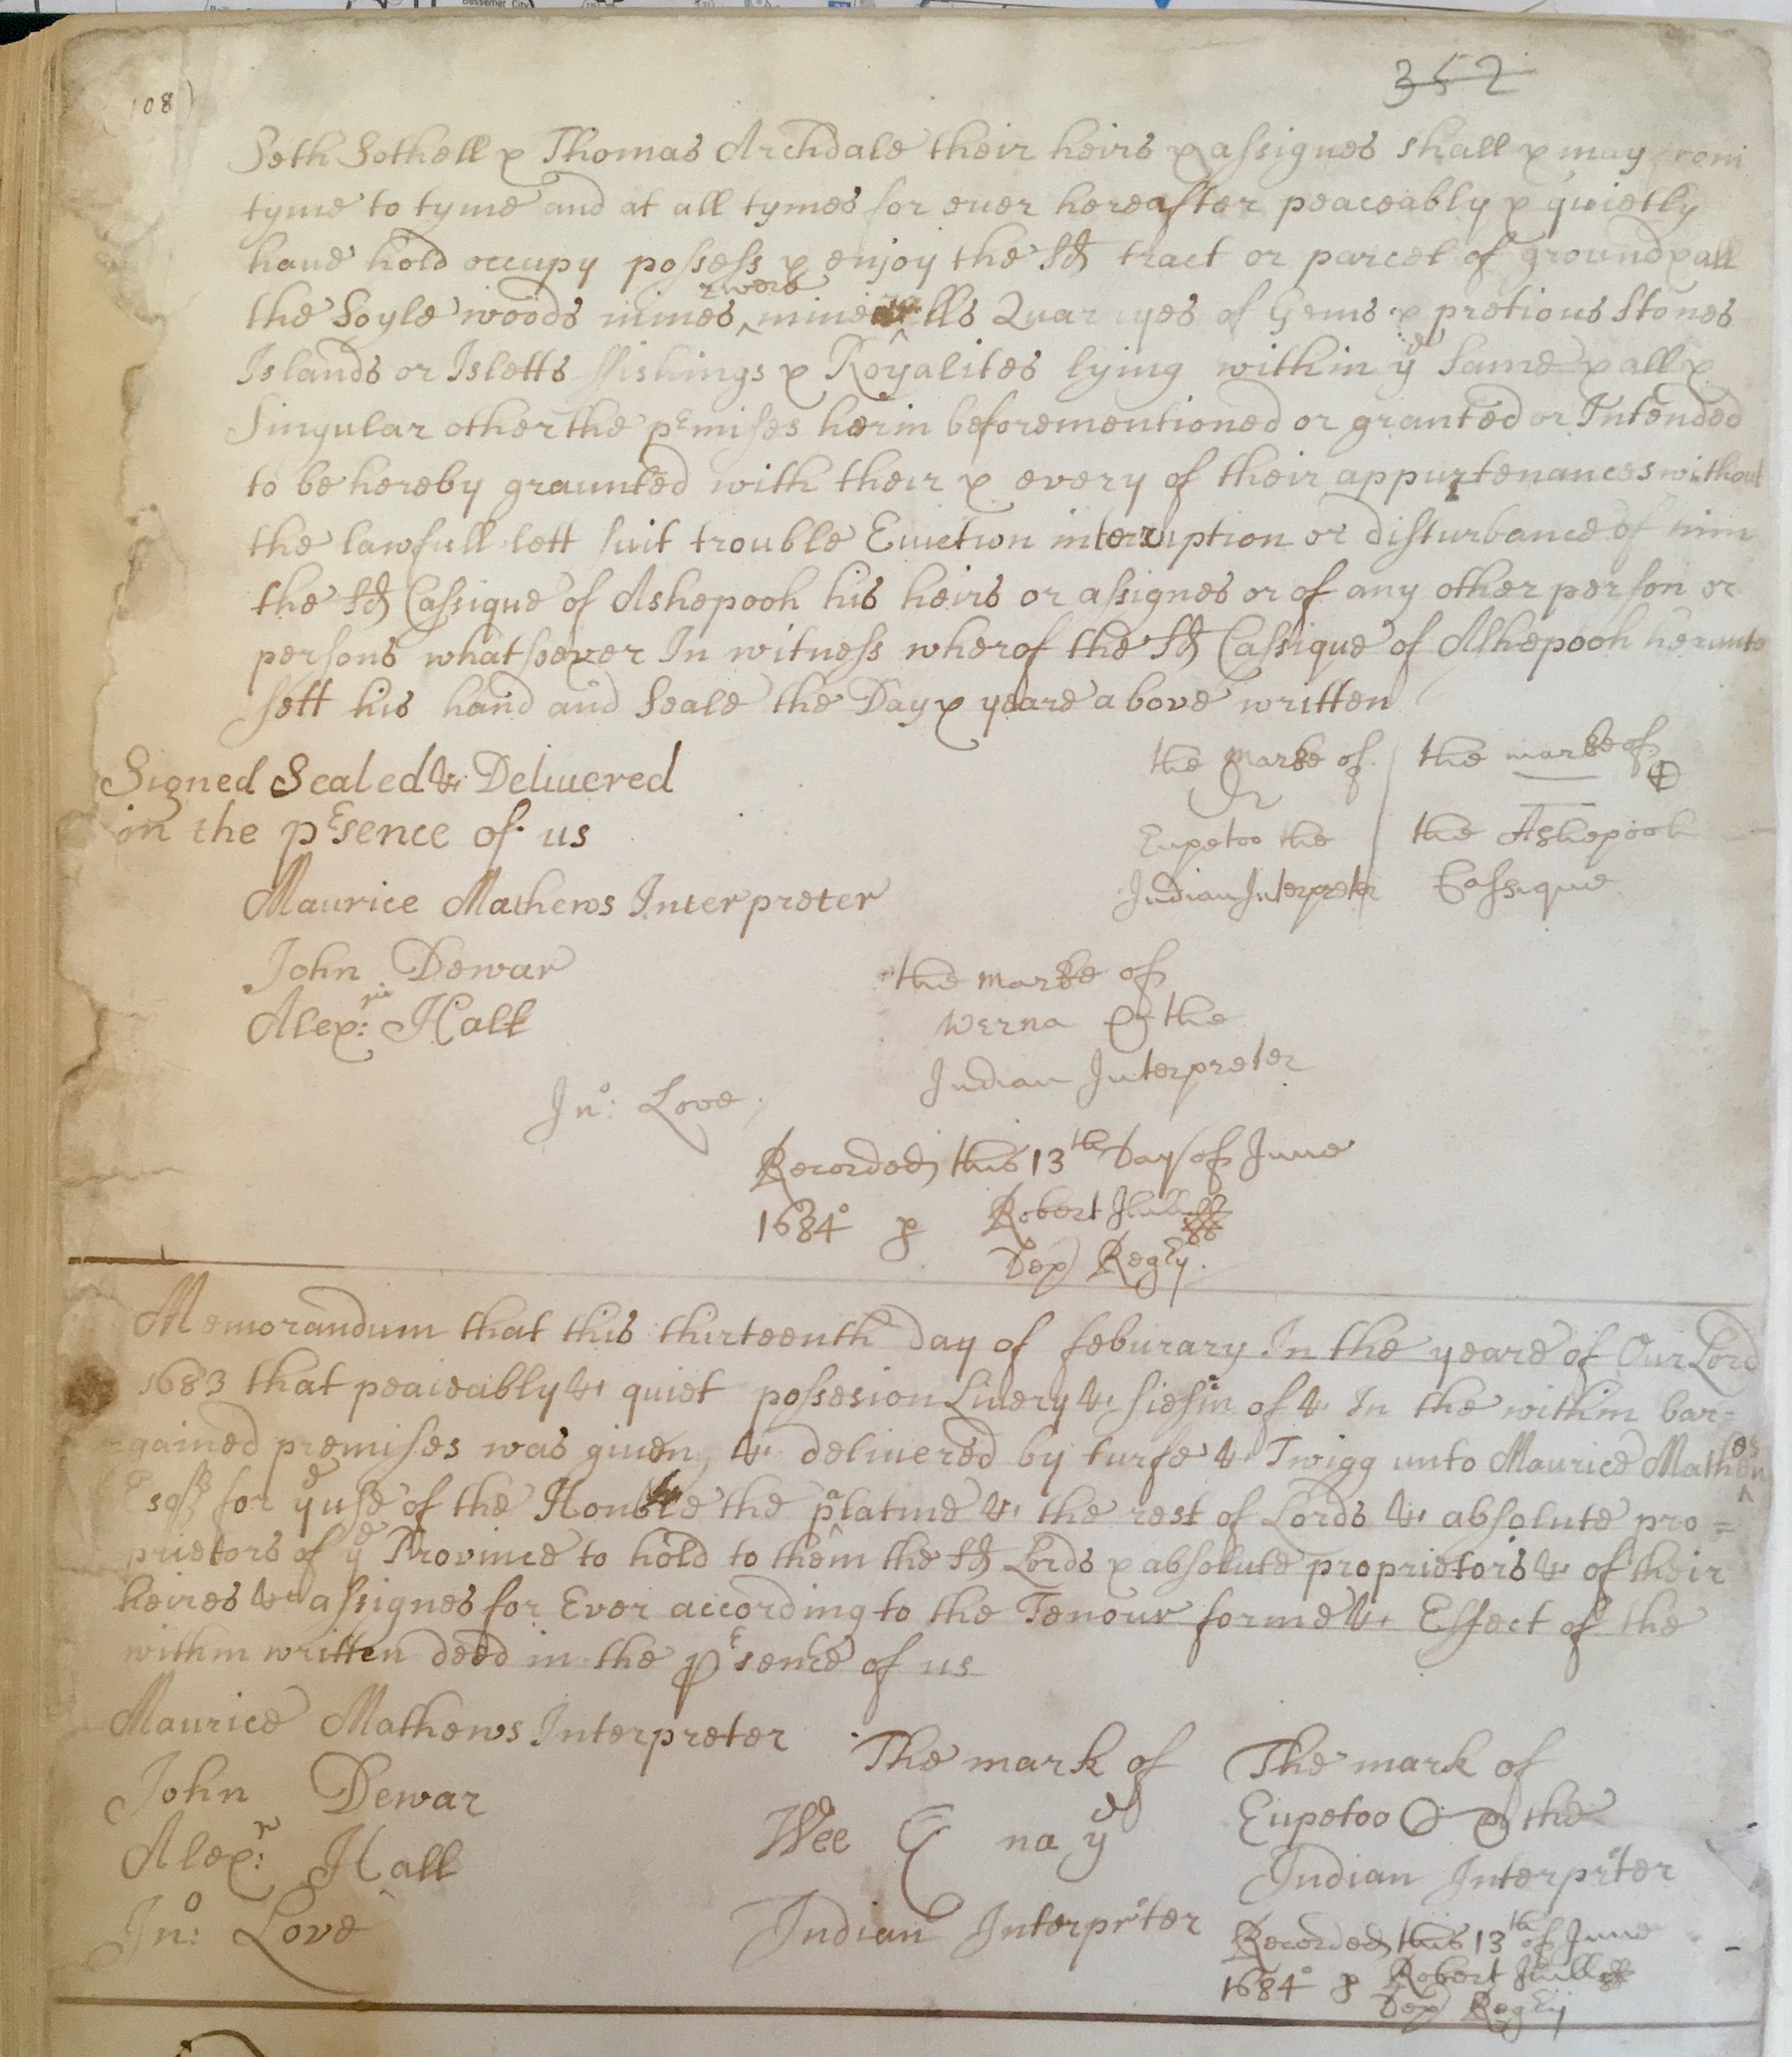 Bessemer City
352
108)
Seth Sothell & Thomas Archdale their heirs & assignes shall & may from
tyme to tyme and at all tymes for ever hereafter peaceably & quietly
have hold occupy possess & enjoy the sd tract or parcel of ground & all
rivers
the Soyle woods mines ^ mineralls Quarryes of Gems & pretious Stones
Islands or Isletts ffishings & Royalites lying within ye same & all &
Singular other the pEmises herin beforementioned or granted or Intended
to be hereby graunted with their & every of their appurtenances without
the lawfull lett suit trouble Eviction interruption or disturbance of him
the sd Cassique of Ashepooh his heirs or assignes or of any other person or
persons whatsoever In witness wherof the sd Cassique of Ashepooh herunto
sett his hand and Seale the Day & yeare above written
Signed Sealed & Delivered
in the pEsence of us
the marke of
Eupetoo the
Indian Interpreter
the marke of
the Ashepooh
Cassique
Maurice Mathews Interpreter
John Dewar
Alexr: Hall
the marke of
werna the
Indian Interpreter
Jno: Love
Recorded this 13th Day of June
1684° p Robert
Dep Regry.
Memorandum that this thirteenth day of feburary In the yeare of Our Lord
1683 that peaceably & quiet possesion Livery & siesin of & In the within bar=
=gained premises was given, & delivered by turfe & Twigg unto Maurice Mathews
Esqr for ye use of the Honble the palatine & the rest of Lords & absolute pro=
prietors of ye Province to hold to them the sd Lords & absolute proprietors & of their
heires & assignes for Ever according to the Tenour forme & Effect of the
within written deed in the pEsence of us
Maurice Mathews Interpreter
John Dewar
Alexr: Hall
Jno: Love
The mark of
Wee na ye
Indian Interprter
The mark of
Eupetoo the
Indian Interprter
Recorded this 13th of June
1684° p Robert
Dep Regry